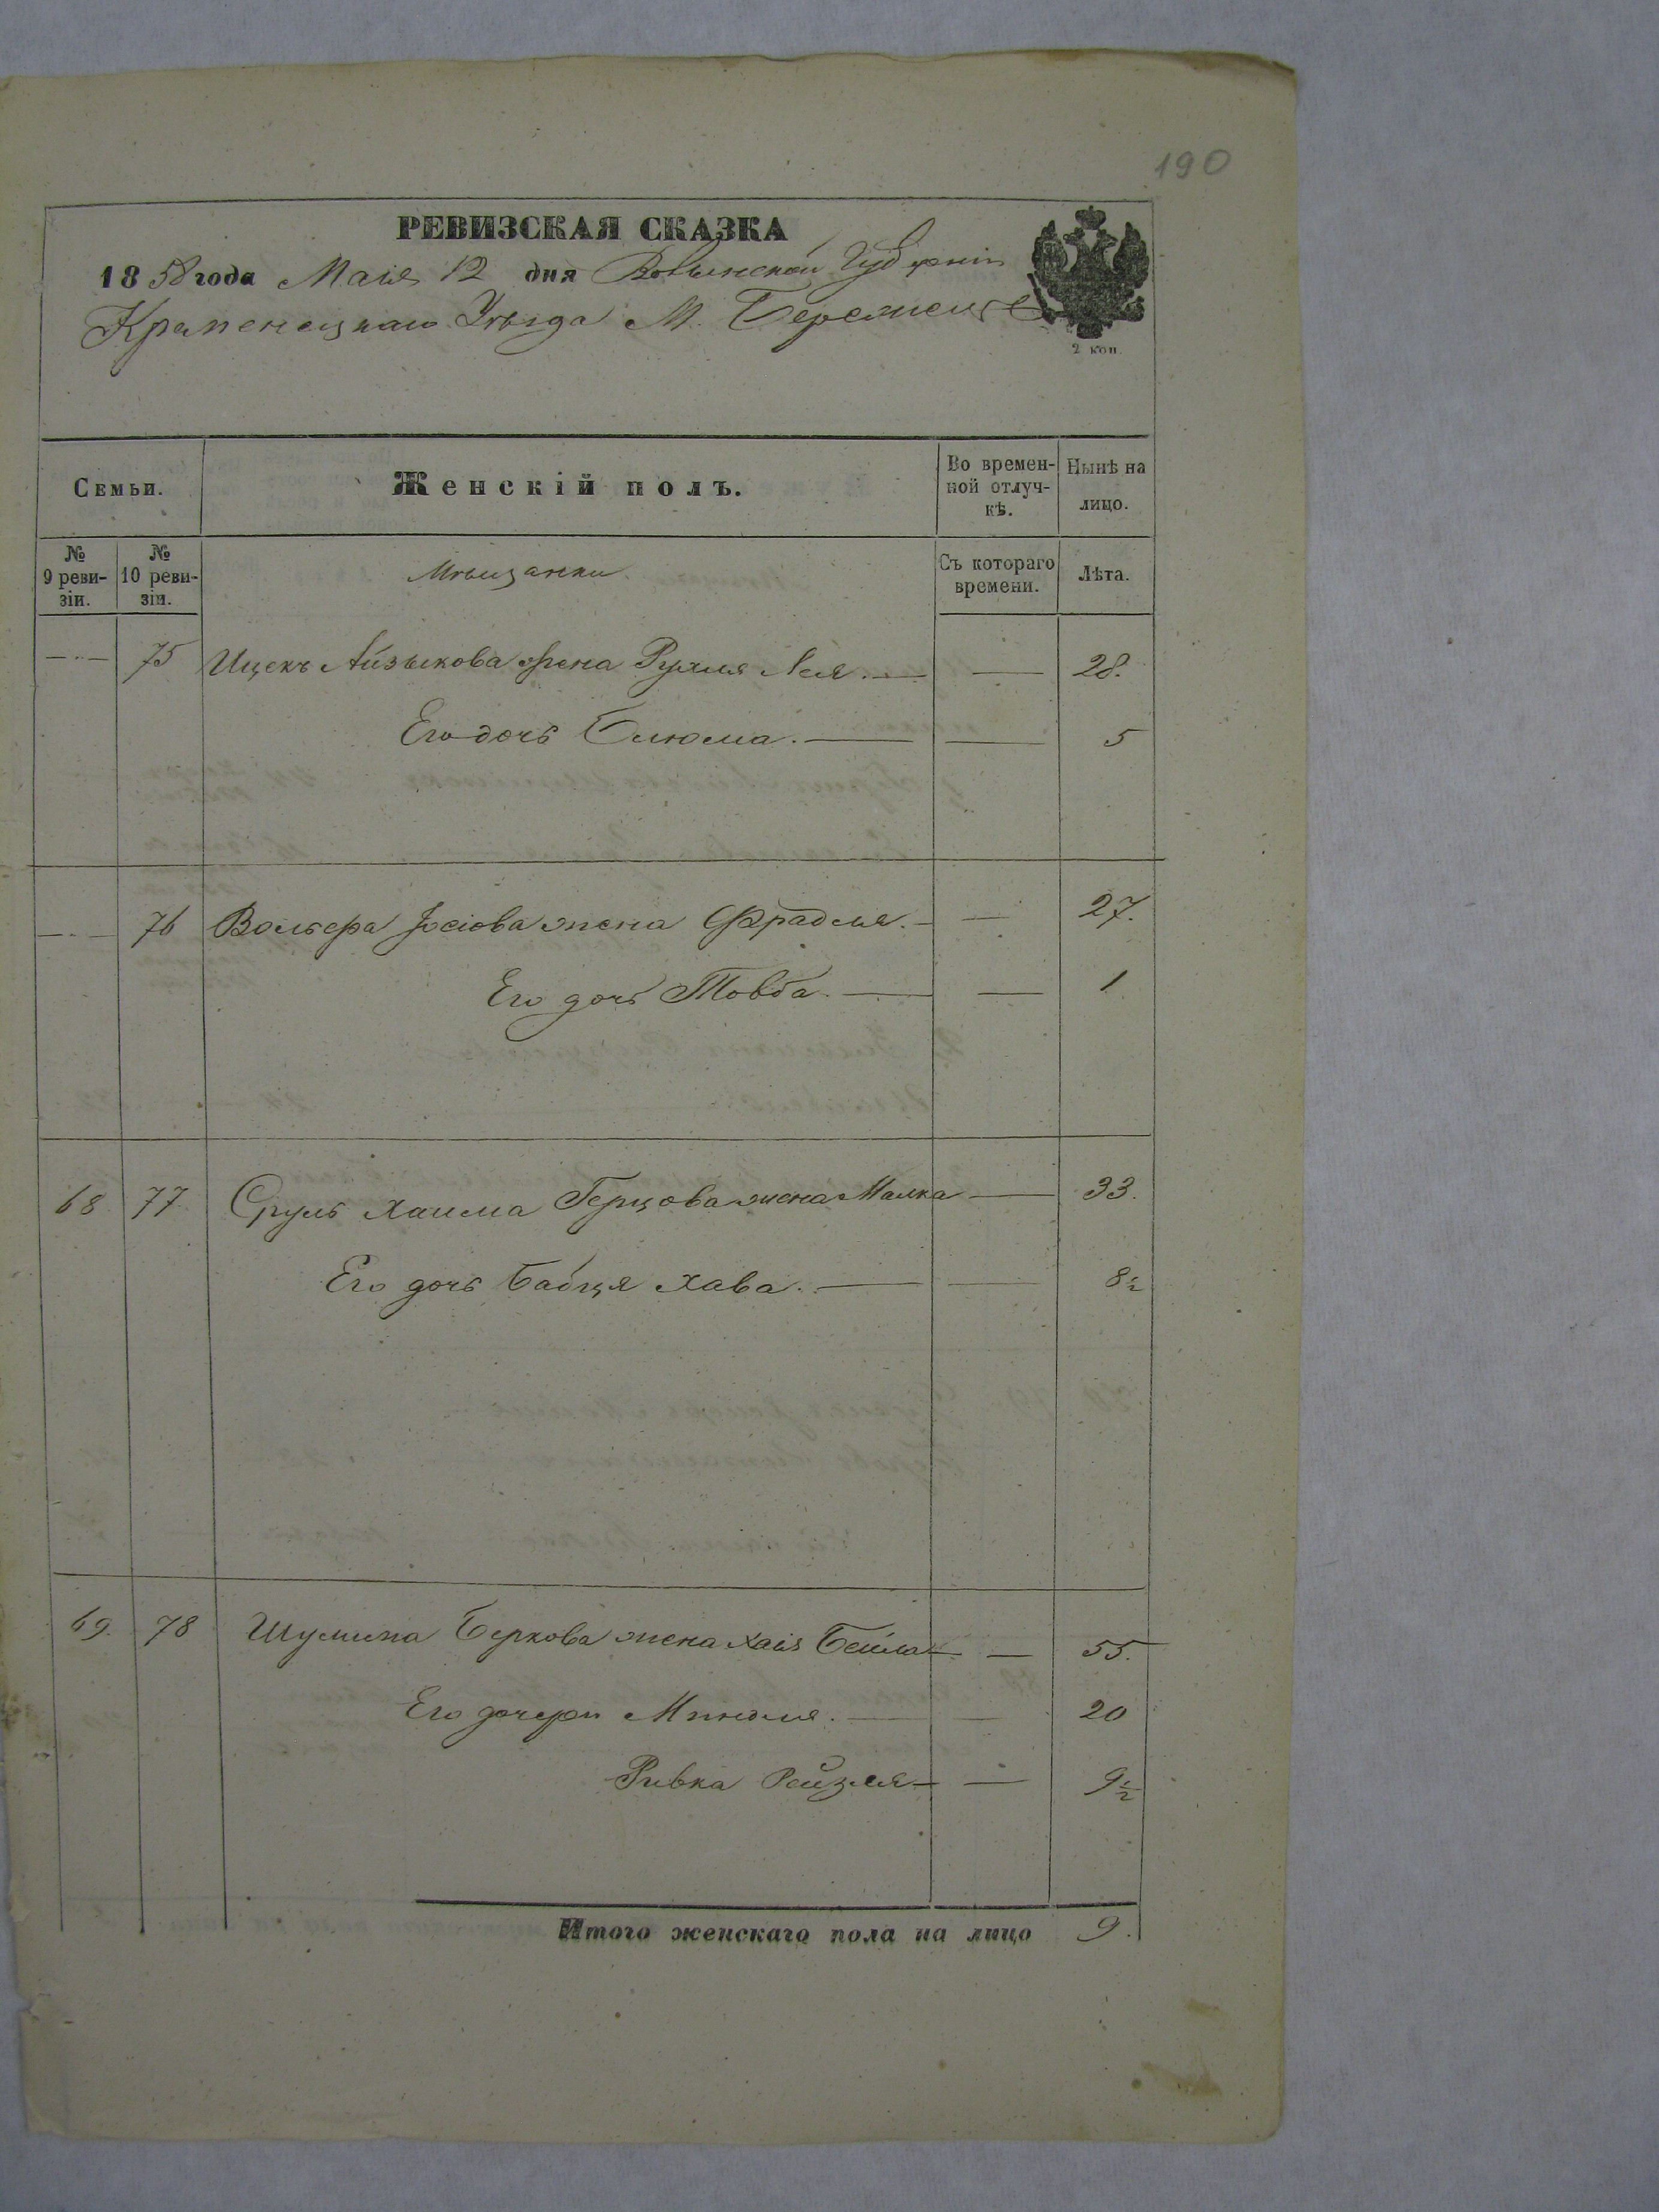 190
РЕВИЗСКАЯ СКАЗКА
1858 года Маія 12 дня Волынской Губерніи
Кременецкаго Уѣзда М. Бережец
2 коп.
Семьи.
Женскій полъ.
Во времен-
ной отлуч-
кѣ.
Нынѣ на
лицо.
№
9 реви-
зіи.
№
10 реви-
зіи.
Мѣщанки
Съ котораго
времени.
Лѣта.
— 75 Ицекъ Айзыкова жена Рухля Лея. — — 28.
Его дочь Блюма. — — 5
— 76 Вольфа Іосіова жена Фрадля. — — 27.
Его дочь Товба. — — 1
68 77 Сруль Хаима Герцова жена Малка — 33.
Его дочь Бабця Хава. — — 8½
69. 78 Шулима Беркова жена Хаія Бейла — — 55.
Его дочери Миндля. — — 20
Ривка Рейзля — — 9½
Итого женскаго пола на лицо 9.